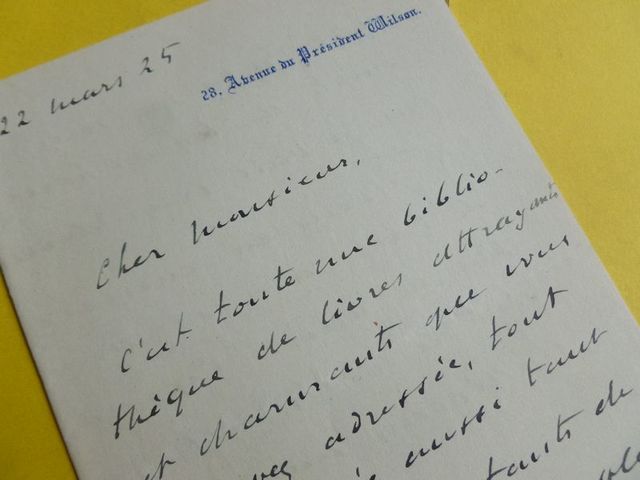 28. Avenue du Président Wilson.
22 mars 25
Cher Monsieur,
C'est toute une biblio-
thèque de livres attrayants
et charmants que vous
adressée, tout
aussi tant
de